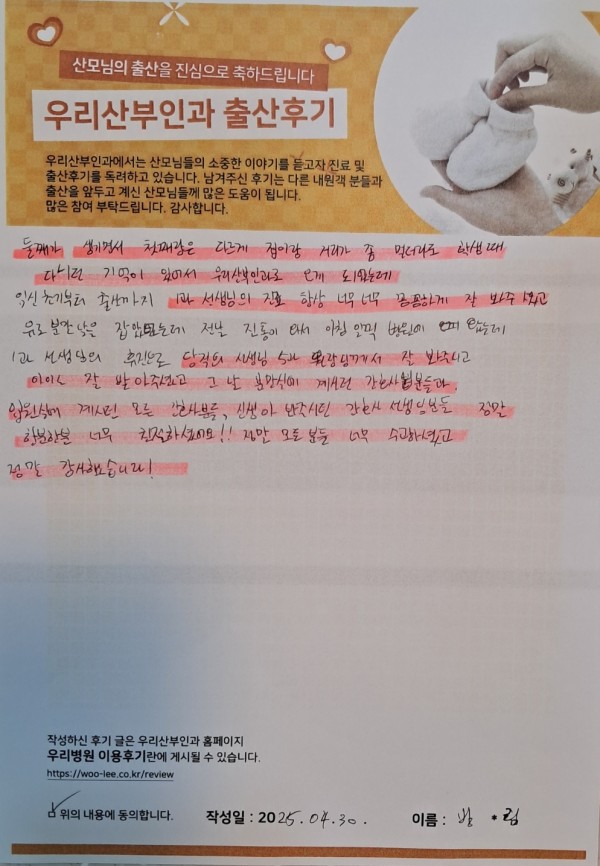 산모님의 출산을 진심으로 축하드립니다
우리산부인과 출산후기
우리산부인과에서는 산모님들의 소중한 이야기를 듣고자 진료 및
출산후기를 독려하고 있습니다. 남겨주신 후기는 다른 내원객 분들과
출산을 앞두고 계신 산모님들께 많은 도움이 됩니다.
많은 참여 부탁드립니다. 감사합니다.
둘째가 생기면서 첫째랑은 다르게 집이랑 거리가 좀 멀더라도 학생때
다니던 기억이 있어서 우리산부인과로 오게 되었는데
임신 초기부터 출산까지 1과 선생님의 진료 항상 너무 너무 꼼꼼하게 잘 봐주셨고
유도분만 날을 잡았는데 전날 진통이 와서 아침 일찍 병원에 왔는데
1과 선생님의 휴진으로 당직의 선생님 5과 원장님께서 잘 봐주시고
아이도 잘 받아주셨고 그 날 분만실에 계시던 간호사분들과,
입원실에 계시던 모든 간호사분들, 신생아 간호사 선생님분들 정말
한분한분 너무 친절하셨어요!! 정말 모든분들 너무 수고하셨고
정말 감사했습니다!
작성하신 후기 글은 우리산부인과 홈페이지
우리병원 이용후기란에 게시될 수 있습니다.
https://woo-lee.co.kr/review
위의 내용에 동의합니다. 작성일 : 2025. 04. 30. 이름 : 박 * 림